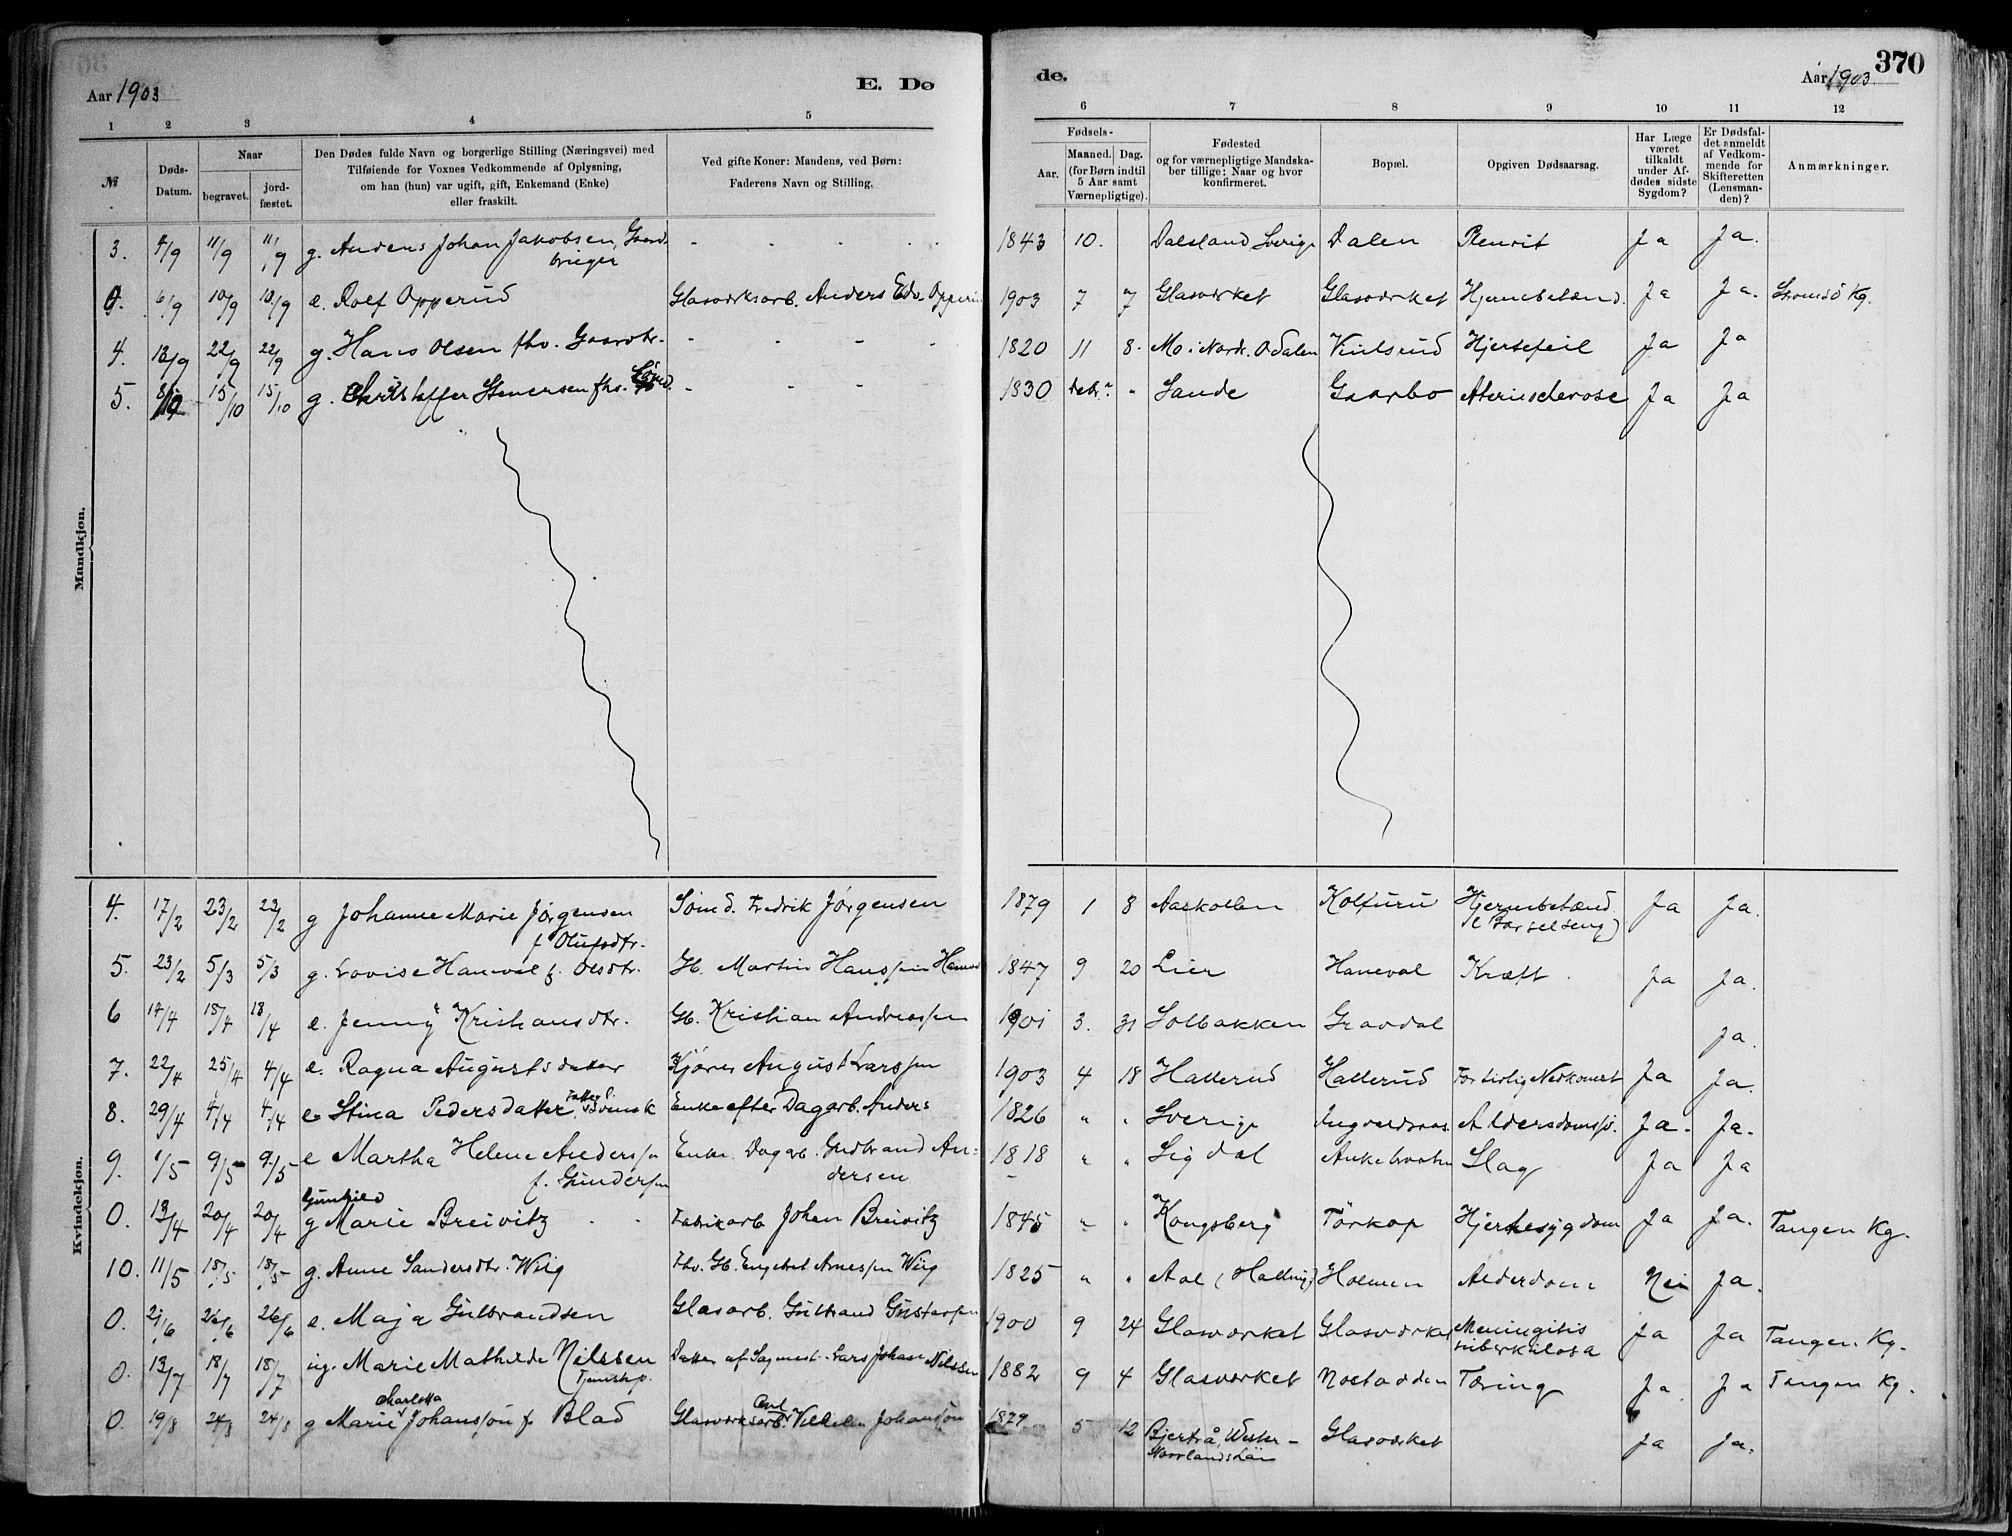 Aar 1903
E. Dø
de.
Aar 1903
370
1 2 3 4 5 6 7 8 9 10 11 12
№
Døds-Datum.
Naar
begravet.
jord-fæstet.
Den Dødes fulde Navn og borgerlige Stilling (Næringsvei) med
Tilføiende for Voxnes Vedkommende af Oplysning,
om han (hun) var ugift, gift, Enkemand (Enke)
eller fraskilt.
Ved gifte Koner: Mandens, ved Børn:
Faderens Navn og Stilling.
Fødsels-
Aar.
Maaned. Dag.
(for Børn indtil
5 Aar samt
Værnepligtige).
Fødested
og for værnepligtige Mandska-
ber tillige: Naar og hvor
konfirmeret.
Bopæl.
Opgiven Dødsaarsag.
Har Læge
været
tilkaldt
under Af-
dødes sidste
Sygdom?
Er Dødsfal-
det anmeldt
af Vedkom-
mende for
Skifteretten
(Lensman-
den)?
Anmærkninger.
Mandkjøn.
3. 4/9 11/9 11/9 g. Anders Johan Jakobsen, Gaard- - - - - 1843 10. Dalsland Sverige Dalen Ja Ja.
bruger
0. 6/9 10/9 10/9 e. Rolf Opperud Glasværksarb. Anders Edv. Opperud 1903 7 7 Glasværket Glasværket Hjernebetænd. Ja Ja. Strømsø Kg.
4. 13/9 22/9 22/9 g. Hans Olsen fhv. Gaardbr. - - - - 1820 11 8. Mo i Nordr. Odalen Hjertefeil Ja Ja
5. 8/10 15/10 15/10 g. Christoffer Stenersen fhv. - - - - 1830 Debr. " Sande Gaarbo Ja Ja
Kvindekjøn.
4. 17/2 23/2 23/2 g Johanne Marie Jørgensen Sømd. Fredrik Jørgensen 1879 1 8 Aaskollen Kolfuru Hjernebetænd Ja Ja.
f Olufsdtr. (Barselseng)
5. 23/2 5/3 5/3 g. Lovise Haneval f. Olsdtr. Gb. Martin Hanssen Haneval 1847 9 20 Lier Haneval Kræft. Ja Ja.
6 14/4 18/4 18/4 e. Jenny Kristiansdtr. Gb. Kristian Andreassen 1901 3. 31 Solbakken Gravdal Ja.
7. 22/4 25/4 4/4 e. Ragna Augustsdatter Kjører August Larssen 1903 4 18 Hallerud Hallerud For tidlig Nedkomst Ja Ja.
8. 29/4 4/4 4/4 e Stina Pedersdatter Svensk Enke efter Dagarb. Anders 1826 " " Sverige Alderdomssv. Ja. Ja.
9. 1/5 9/5 9/5 e Martha Helene Anderssn Enke. Dagarb. Gudbrand An- 1818 " " Sigdal Slag Ja Ja
f. Gundersen dersen
Gunhild
0. 13/4 20/4 20/4 g Marie Breivitz Fabrikarb Johan Breivitz 1845 " " Kongsberg Tørkop Hjertesygdom Ja Ja. Tangen Kg.
10. 11/5 18/5 18/5 g. Anne Sandersdtr. Wiig Fhv. Gb. Engebret Arnessen Wiig 1825 " " Aal (Halling) Holmen Alderdom Nei Ja.
0. 21/6 26/6 26/6 e. Maja Gulbrandsen Glasarb. Gulbrand Gustavsen 1900 9 24 Glasværket Glasværket Meningitis Ja Ja Tangen Kg.
tuberkulosa
0. 13/7 18/7 18/7 ug. Marie Mathilde Nilssen Datter af Sagmest. Lars Johan Nilssen 1882 9 4 Glasværket Nostodden Tæring Ja. Ja Tangen Kg.
Tjenstp.
Charlotta Carl
0. 19/8 24/8 24/8 g Marie Johansson f Blad Glasværksarb. Vilhelm Johansson 1879 5 12 Bjertrå, Wester- Glasværket Ja Ja.
Norrlands Län